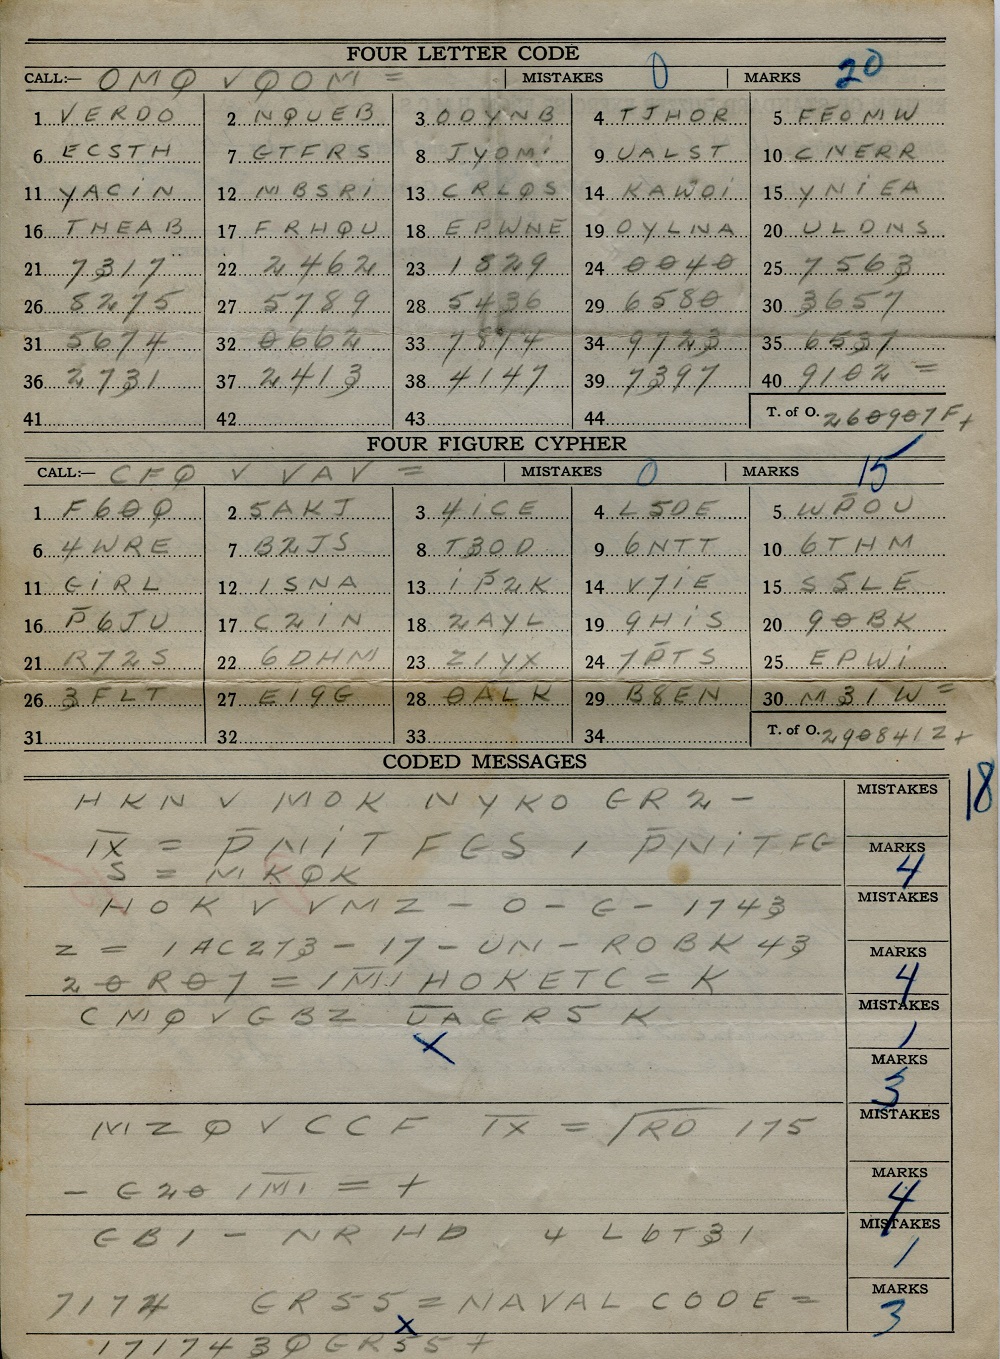 FOUR LETTER CODE
CALL:— OMQ V QOM = MISTAKES 0 MARKS 20
1 VERDO 2 NQUEB 3 ODYNB 4 TJHOR 5 FEOMW
6 ECSTH 7 GTFRS 8 JYOMI 9 UALST 10 CNERR
11 YACIN 12 MBSRI 13 CRLQS 14 KAWOI 15 YNIEA
16 THEAB 17 FRHQU 18 EPWNE 19 OYLNA 20 ULDNS
21 7317 22 2462 23 1829 24 0040 25 7563
26 8275 27 5789 28 5436 29 6580 30 3657
31 5674 32 0662 33 7874 34 9723 35 6537
36 2731 37 2413 38 4147 39 7397 40 9102 =
41 42 43 44 T. of O. 260907F+
FOUR FIGURE CYPHER
CALL:— CFQ V VAV = MISTAKES 0 MARKS 15
1 F60Q 2 5AKJ 3 4iCE 4 L5DE 5 WP̄OU
6 4WRE 7 B2JS 8 T3OD 9 6NTT 10 6THM
11 GiRL 12 1SNA 13 iP̄2K 14 V7iE 15 S5LE
16 P̄6JU 17 C2iN 18 2AYL 19 9HiS 20 90BK
21 R72S 22 6DHM 23 Z1YX 24 7P̄TS 25 EPWi
26 3FLT 27 E19G 28 0ALK 29 B8EN 30 M31W =
31 32 33 34 T. of O. 290841Z+
CODED MESSAGES
HKN V MOK NYKO GR2 – MISTAKES
ĪX̄ = P̄NiT FGS / P̄NiTFG MARKS 4
S = NIKQK
HOK V VMZ – O – G – 1743 MISTAKES
Z = 1AC273 – 17 – UN – ROBK 43 MARKS 4
20R07 = IMI HOKETC = K
CMQ V GBZ ŪĀGR5 K MISTAKES 1
X
MARKS 3
MZQ V CCF ĪX̄ = RD 175 MISTAKES
– G20 IMI = + MARKS 4
GB1 – NR HD 4 L6T31 MISTAKES 1
7174 GR55 = NAVAL CODE = MARKS 3
X
171743QGR55+
18